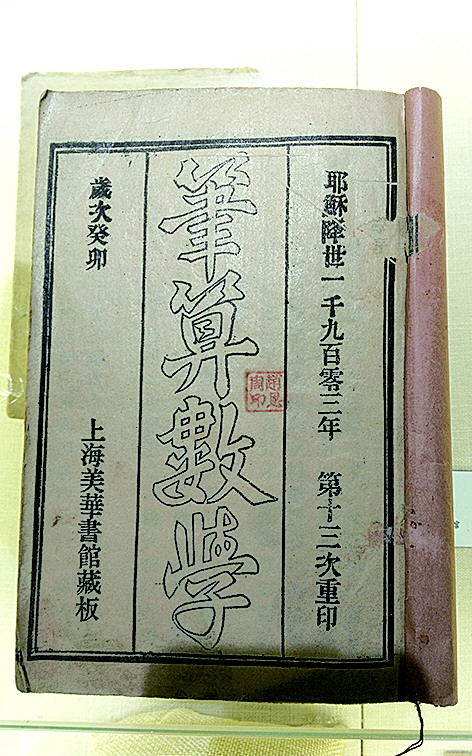 耶穌降世一千九百零三年 第十三次重印
筆算數學
歲次癸卯 上海美華書館藏板